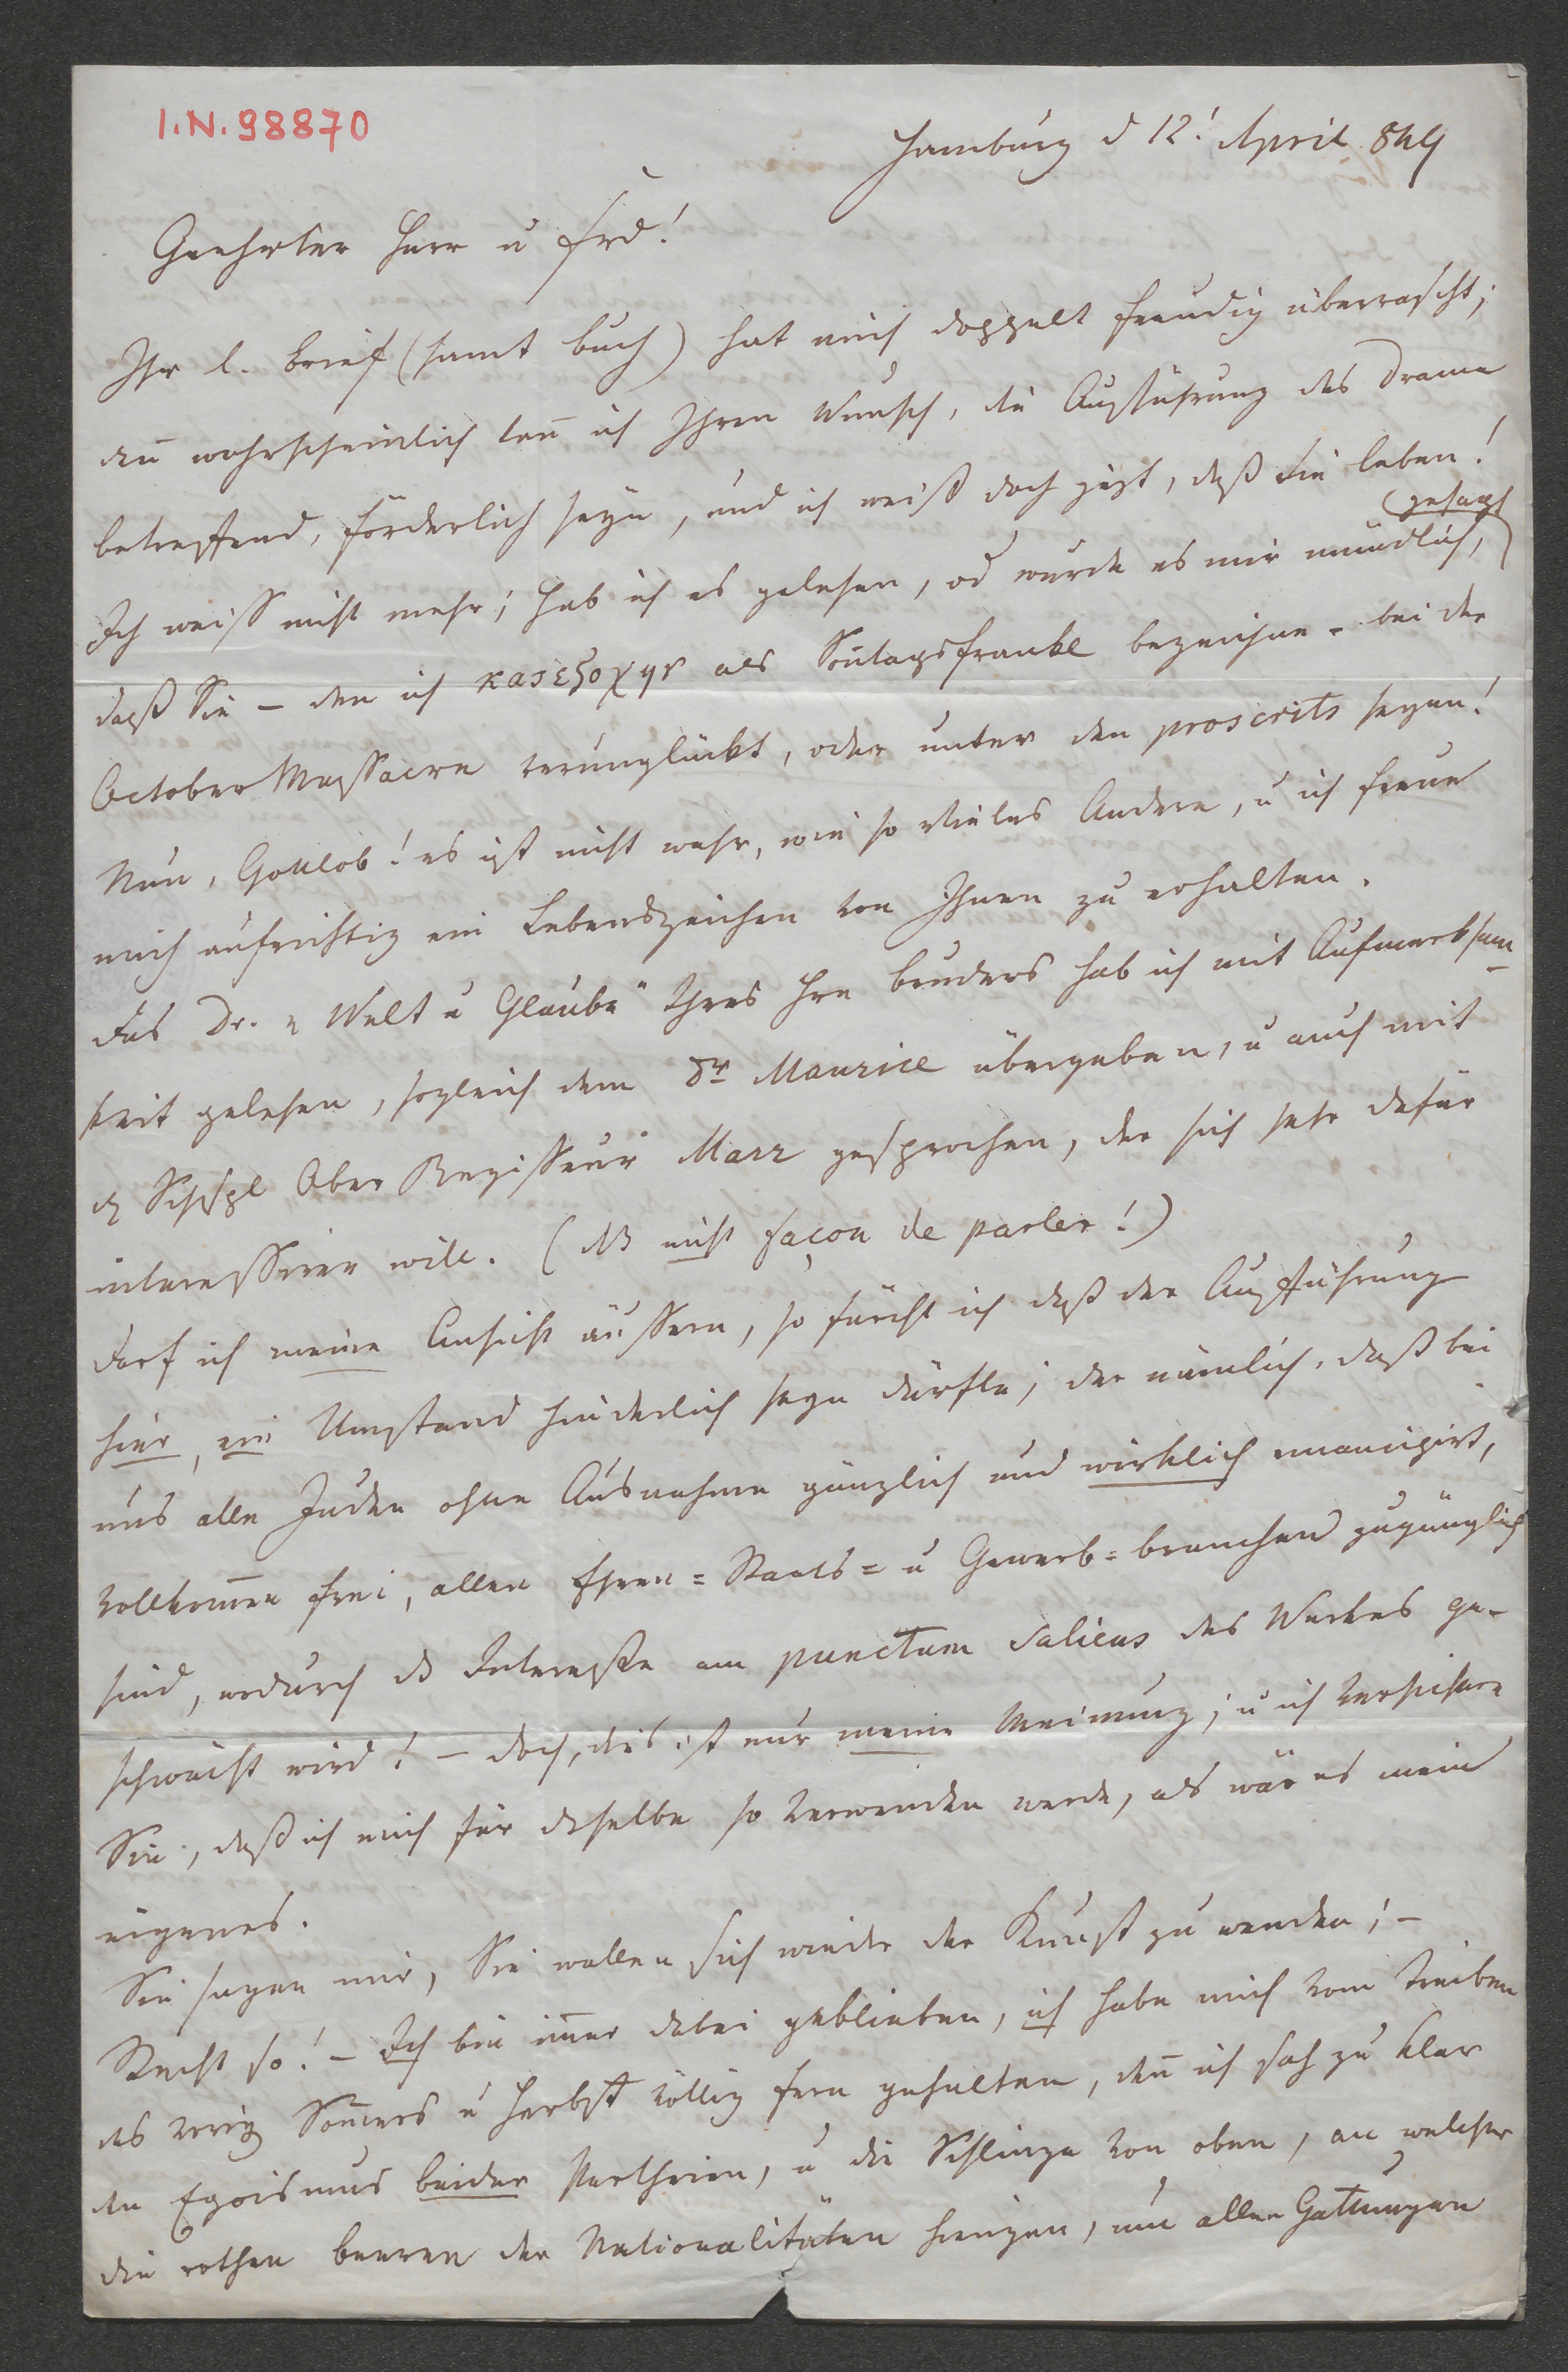 I.N. 98870
Hamburg d 12! April 849
Geehrter Herr u Frd!
Ihr l. Brief (samt Buch) hat mich doppelt freudig überrascht;
den̄ wahrscheinlich kan̄ ich Ihrem Wunsch, die Aufführung des Drama
betreffend, förderlich seyn, und ich weiß doch jezt, daß Sie leben!
Ich weiss nicht mehr; hab ich es gelesen, od wurde es mir mündlich, gesagt
daß Sie – den ich κατεξοχην als Son̄tagsfrankl bezeichne – bei der
October Massacre verunglückt, oder unter den proscrits seyen!
Nun, Gottlob! es ist nicht wahr, wie so Vieles Andere, u ich freue
mich aufrichtig ein Lebenszeichen von Ihnen zu erhalten.
Das Dr. „Welt u Glaube" Ihres Hrn Bruders hab ich mit Aufmerksam-
keit gelesen, sogleich dem Dr Maurice übergeben, u auch mit
d Schspl Ober Regisseur Marr gesprochen, der sich sehr dafür
interessiren will. (NB nicht façon de parler!)
Darf ich meine Ansicht äussern, so fürcht ich daß der Aufführung
hier, ein Umstand hinderlich seyn dürfte; der nämlich, daß bei
uns alle Juden ohne Ausnahme gänzlich und wirklich emancipirt,
vollkom̄en frei, allen Ehren= Staats= u Gewerb=branchen zugänglich
sind, wodurch ds Interesse am punctum salicus des Werkes ge-
schwächt wird! – doch, dies ist nur meine Meinung; u ich versichere
Sie, daß ich mich für dsselbe so verwenden werde, als wär es mein
eigenes.
Sie sagen mir, Sie wollen sich wieder der Kunst zu wenden; –
Recht so! – Ich bin im̄er dabei geblieben, ich habe mich vom Treiben
des vorig Som̄ers u Herbst völlig fern gehalten, den̄ ich sah zu klar
den Egoismus beider Partheien, u die Schlinge von oben, an welcher
die rothen Beeren der Nationalitäten hiengen, um allen Gattungen